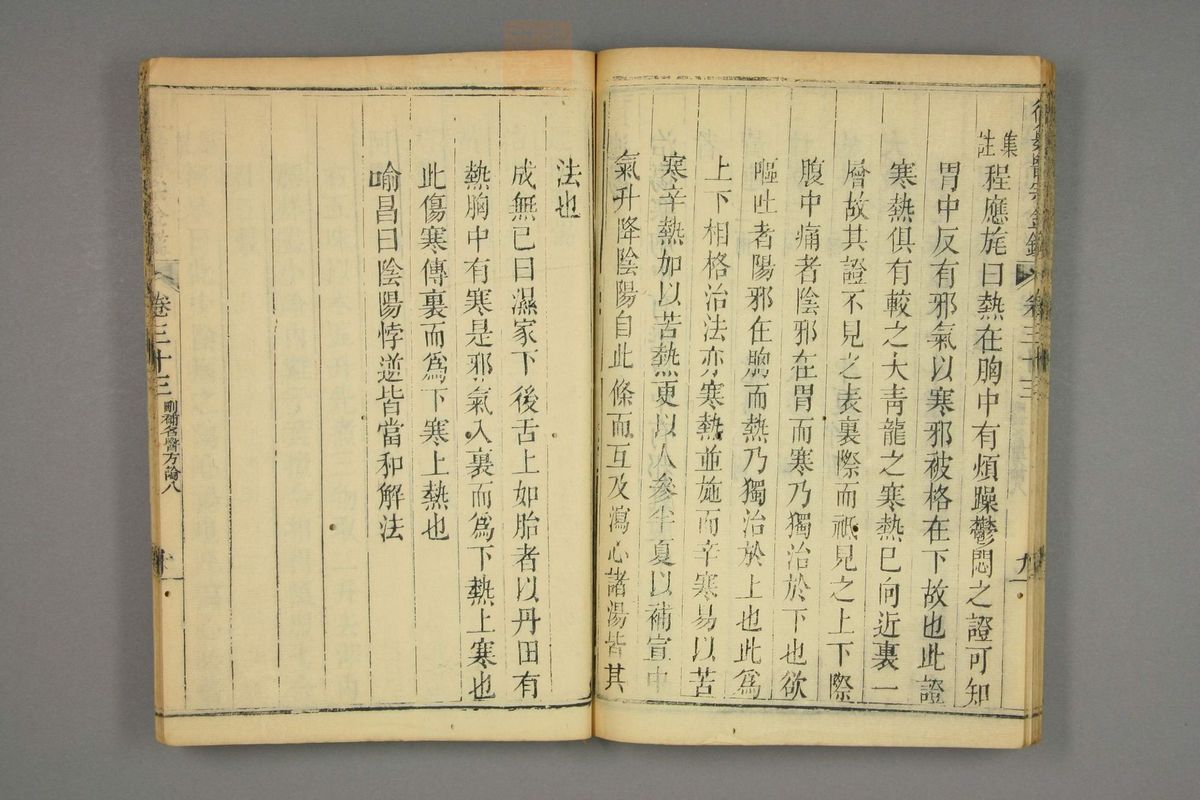 御纂醫宗金鑑
卷三十三
九
集註
程應旄曰熱在胸中有煩躁鬱悶之證可知
胃中反有邪氣以寒邪被格在下故也此證
寒熱俱有較之大青龍之寒熱已向近裏一
層故其證不見之表裏際而祇見之上下際
腹中痛者陰邪在胃而寒乃獨治於下也欲
嘔吐者陽邪在胸而熱乃獨治於上也此為
上下相格治法亦寒熱並施而辛寒易以苦
寒辛熱加以苦熱更以人參半夏以補宣中
氣升降陰陽自此條而互及瀉心諸湯皆其
法也
成無已曰濕家下後舌上如胎者以丹田有
熱胸中有寒是邪氣入裏而為下熱上寒也
此傷寒傳裏而為下寒上熱也
喻昌曰陰陽悖逆皆當和解法
卷三十三
刪補名醫方論八